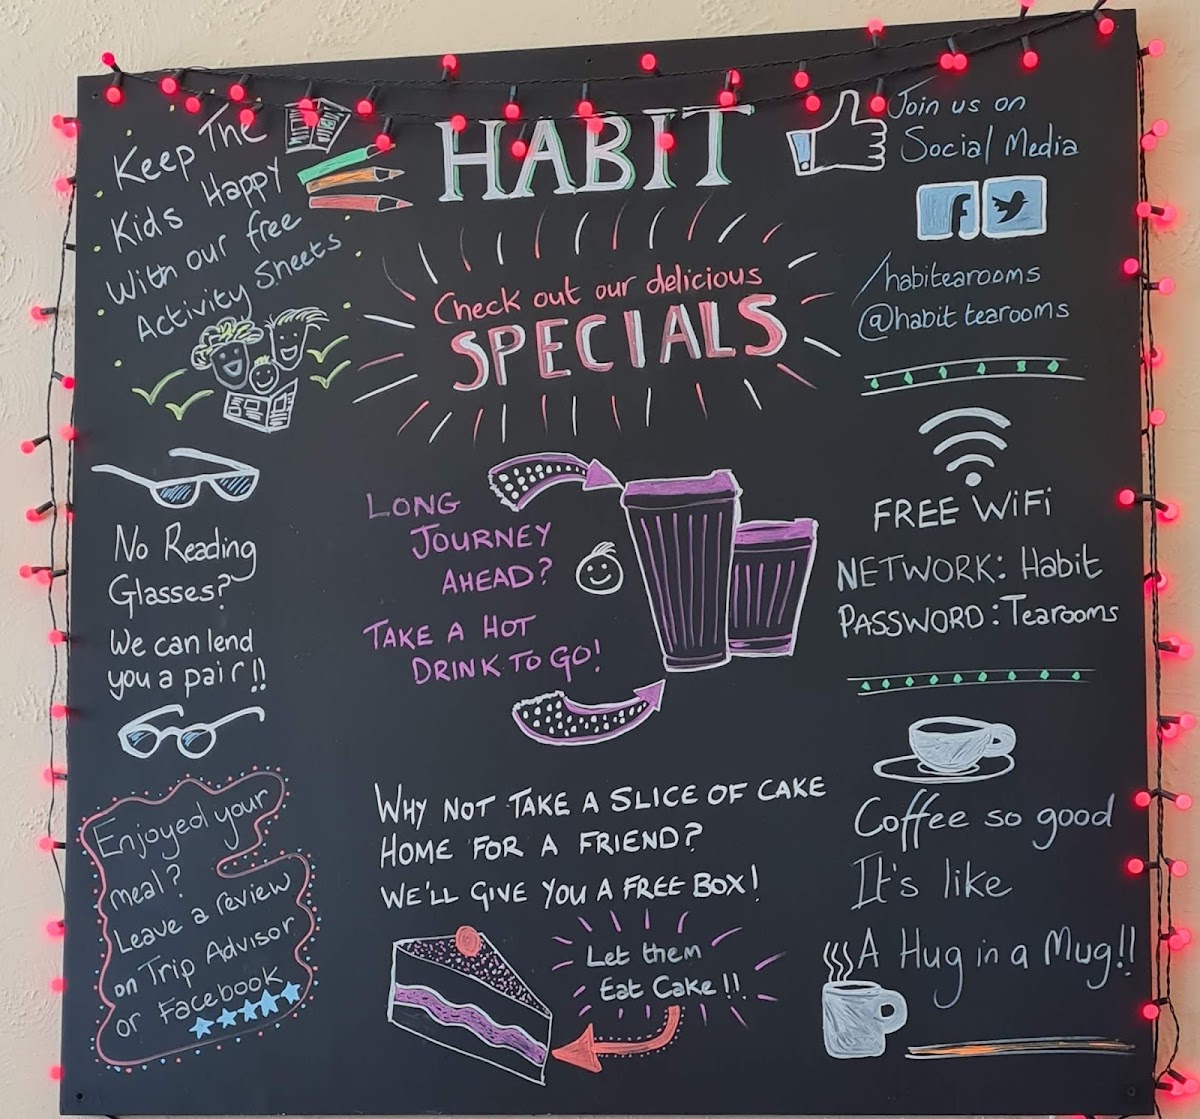 HABIT
Check out our delicious
SPECIALS
Keep The
Kids Happy
With our free
Activity Sheets
Join us on
Social Media
f
/habitearooms
@habit tearooms
No Reading
Glasses?
We can lend
you a pair!!
LONG
JOURNEY
AHEAD?
TAKE A HOT
DRINK TO GO!
FREE WiFi
NETWORK: Habit
PASSWORD: Tearooms
Enjoyed your
meal?
Leave a review
on Trip Advisor
or Facebook
WHY NOT TAKE A SLICE OF CAKE
HOME FOR A FRIEND?
WE'LL GIVE YOU A FREE BOX!
Let them
Eat Cake!!
Coffee so good
It's like
A Hug in a Mug!!